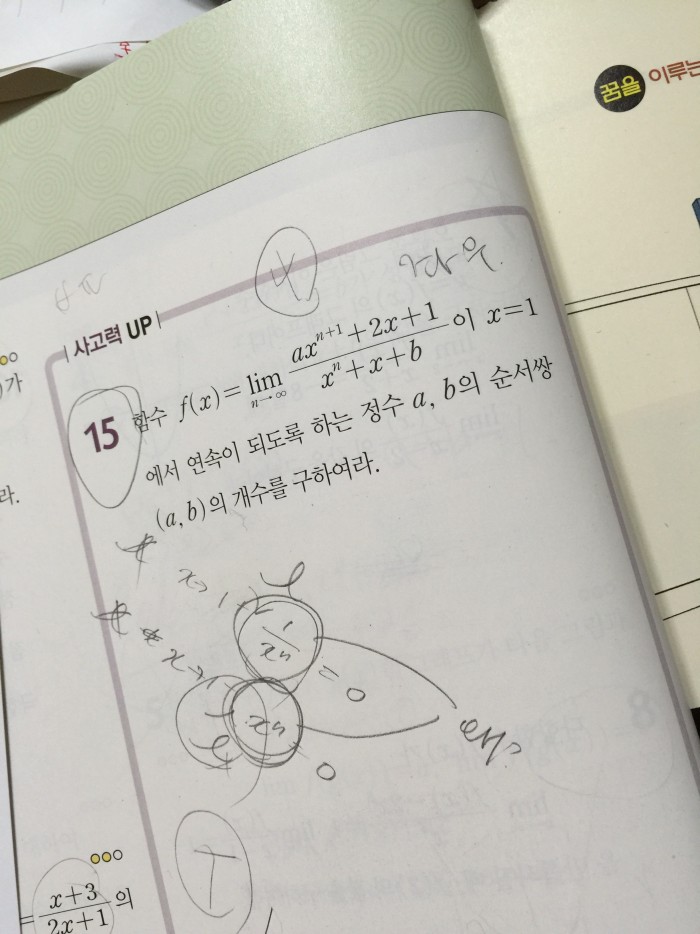 꿈을 이루는
사고력 UP
)가
15 함수 f(x)=lim_{n→∞} \frac{ax^{n+1}+2x+1}{x^n+x+b} 이 x=1
에서 연속이 되도록 하는 정수 a, b의 순서쌍
(a, b)의 개수를 구하여라.
라.
x→1
\frac{1}{x^n} = 0
x→1
x^n = 0
= \frac{x+3}{2x+1} 의